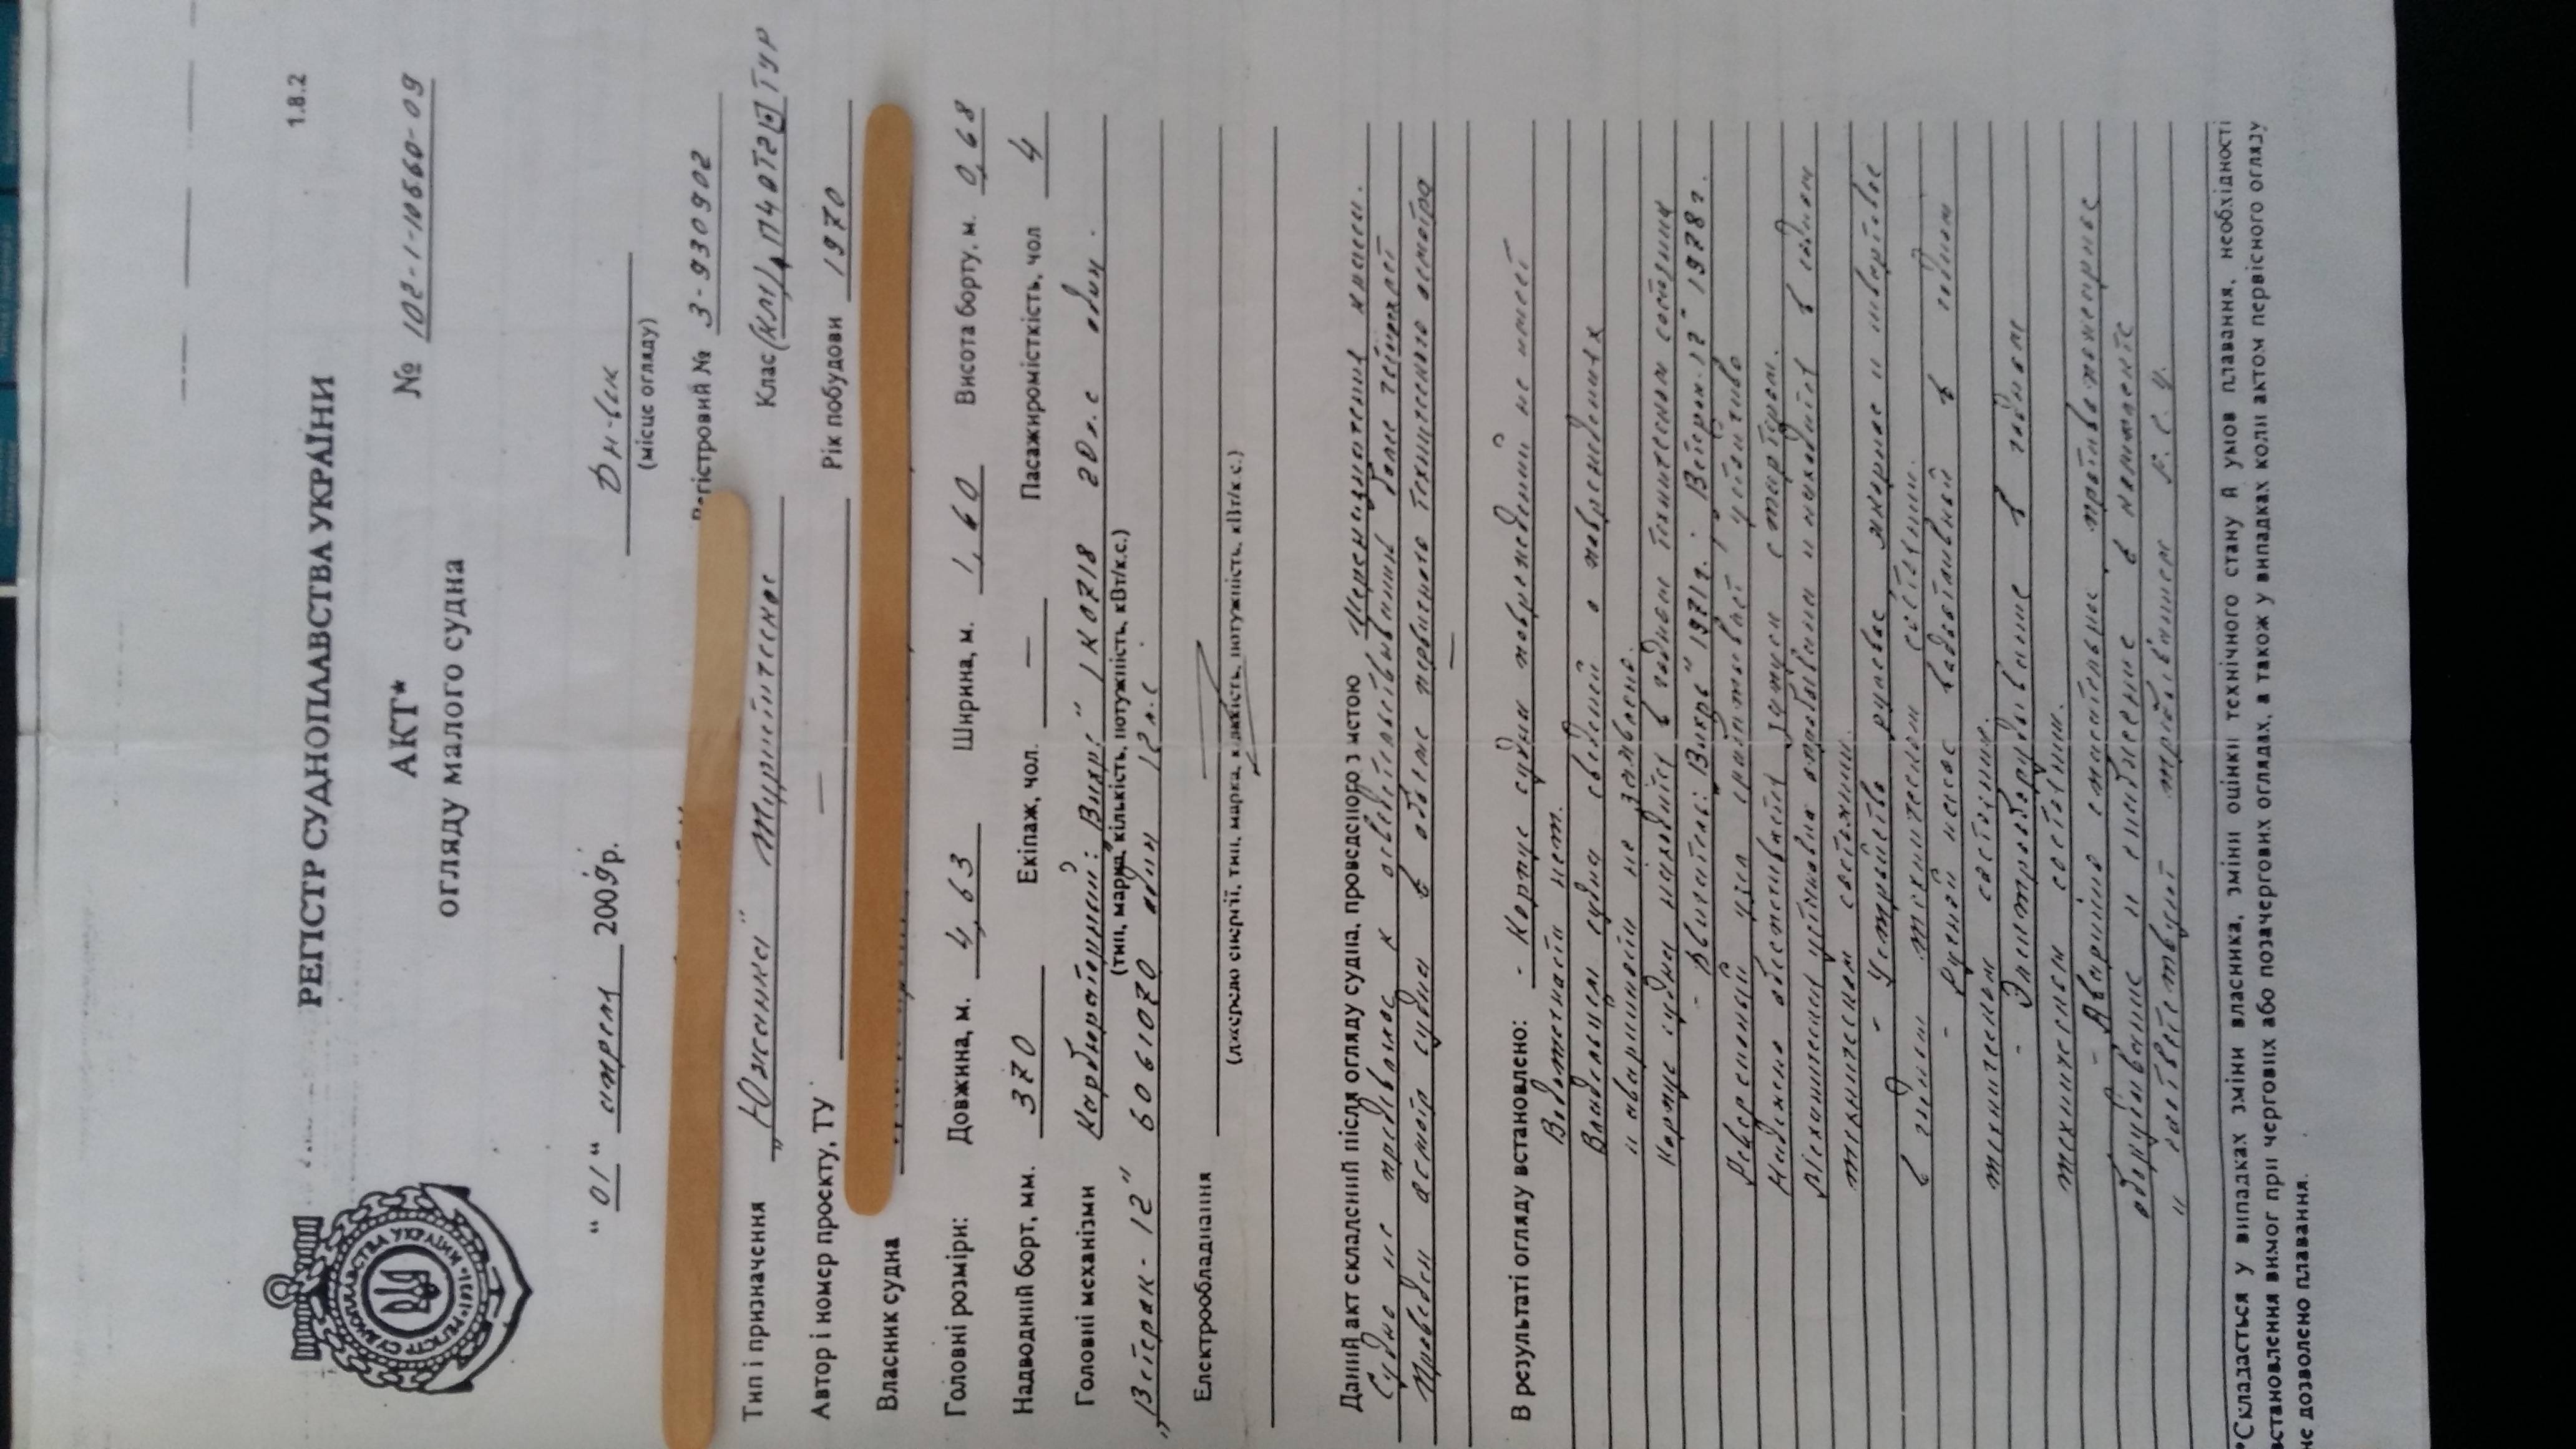 1.8.2
РЕГІСТР СУДНОПЛАВСТВА УКРАЇНИ
АКТ* № 102-1-10660-09
огляду малого судна
"01" апреля 2009р. Дн-вск
(місце огляду)
Регістровий № 3-930902
Тип і призначення „Южанка" туристское Клас (КМ)
Автор і номер проєкту, ТУ — Рік побудови 1970
Власник судна
Головні розміри: Довжина, м. 4,63 Ширина, м. 1,60 Висота борту, м. 0,68
Надводний борт, мм. 370 Екіпаж, чол. — Пасажиромісткість, чол 4
Головні механізми Карбюраторный: „Вихрь" 1К0718 20л.с один.
(тип, марка, кількість, потужність, кВт/к.с.)
„Ветерак-12" 6061070 один 12л.с
Електрообладнання
(джерело енергії, тип, марка, кількість, потужність, кВт/к.с.)
Даний акт складений після огляду судна, проведеного з метою класса.
Судно не предъявлялось к освидетельствованию более
Проведен осмотр судна в объёме первичного технического осмотра
В результаті огляду встановлено: - Корпус судна повреждений не имеет
Водотечности нет.
Владельцем судна сведений о повреждениях
и аварийности не заявлено.
Корпус судна находится в годном техническом состоянии
- Двигатель: „Вихрь" 1971г.; „Ветерак-12" 1978г.
Реверсивный узел срабатывает устойчиво
Надежно обеспечивается запуск стартером.
Механическая установка опробована и находится в годном
техническом состоянии.
- Устройство рулевое якорное и швартовое
в годном техническом состоянии.
- Ручной насос водоотливной в годном
техническом состоянии.
- Электрооборудование в годном
техническом состоянии.
- Аварийно спасательное противопожарное
оборудование и снабжение в комплекте
и соответствует требованиям Р.С.У.
*Складається у випадках зміни власника, зміни оцінки технічного стану й умов плавання, необхідності
встановлення вимог при чергових або позачергових оглядах, а також у випадках коли актом первісного огляду
не дозволено плавання.